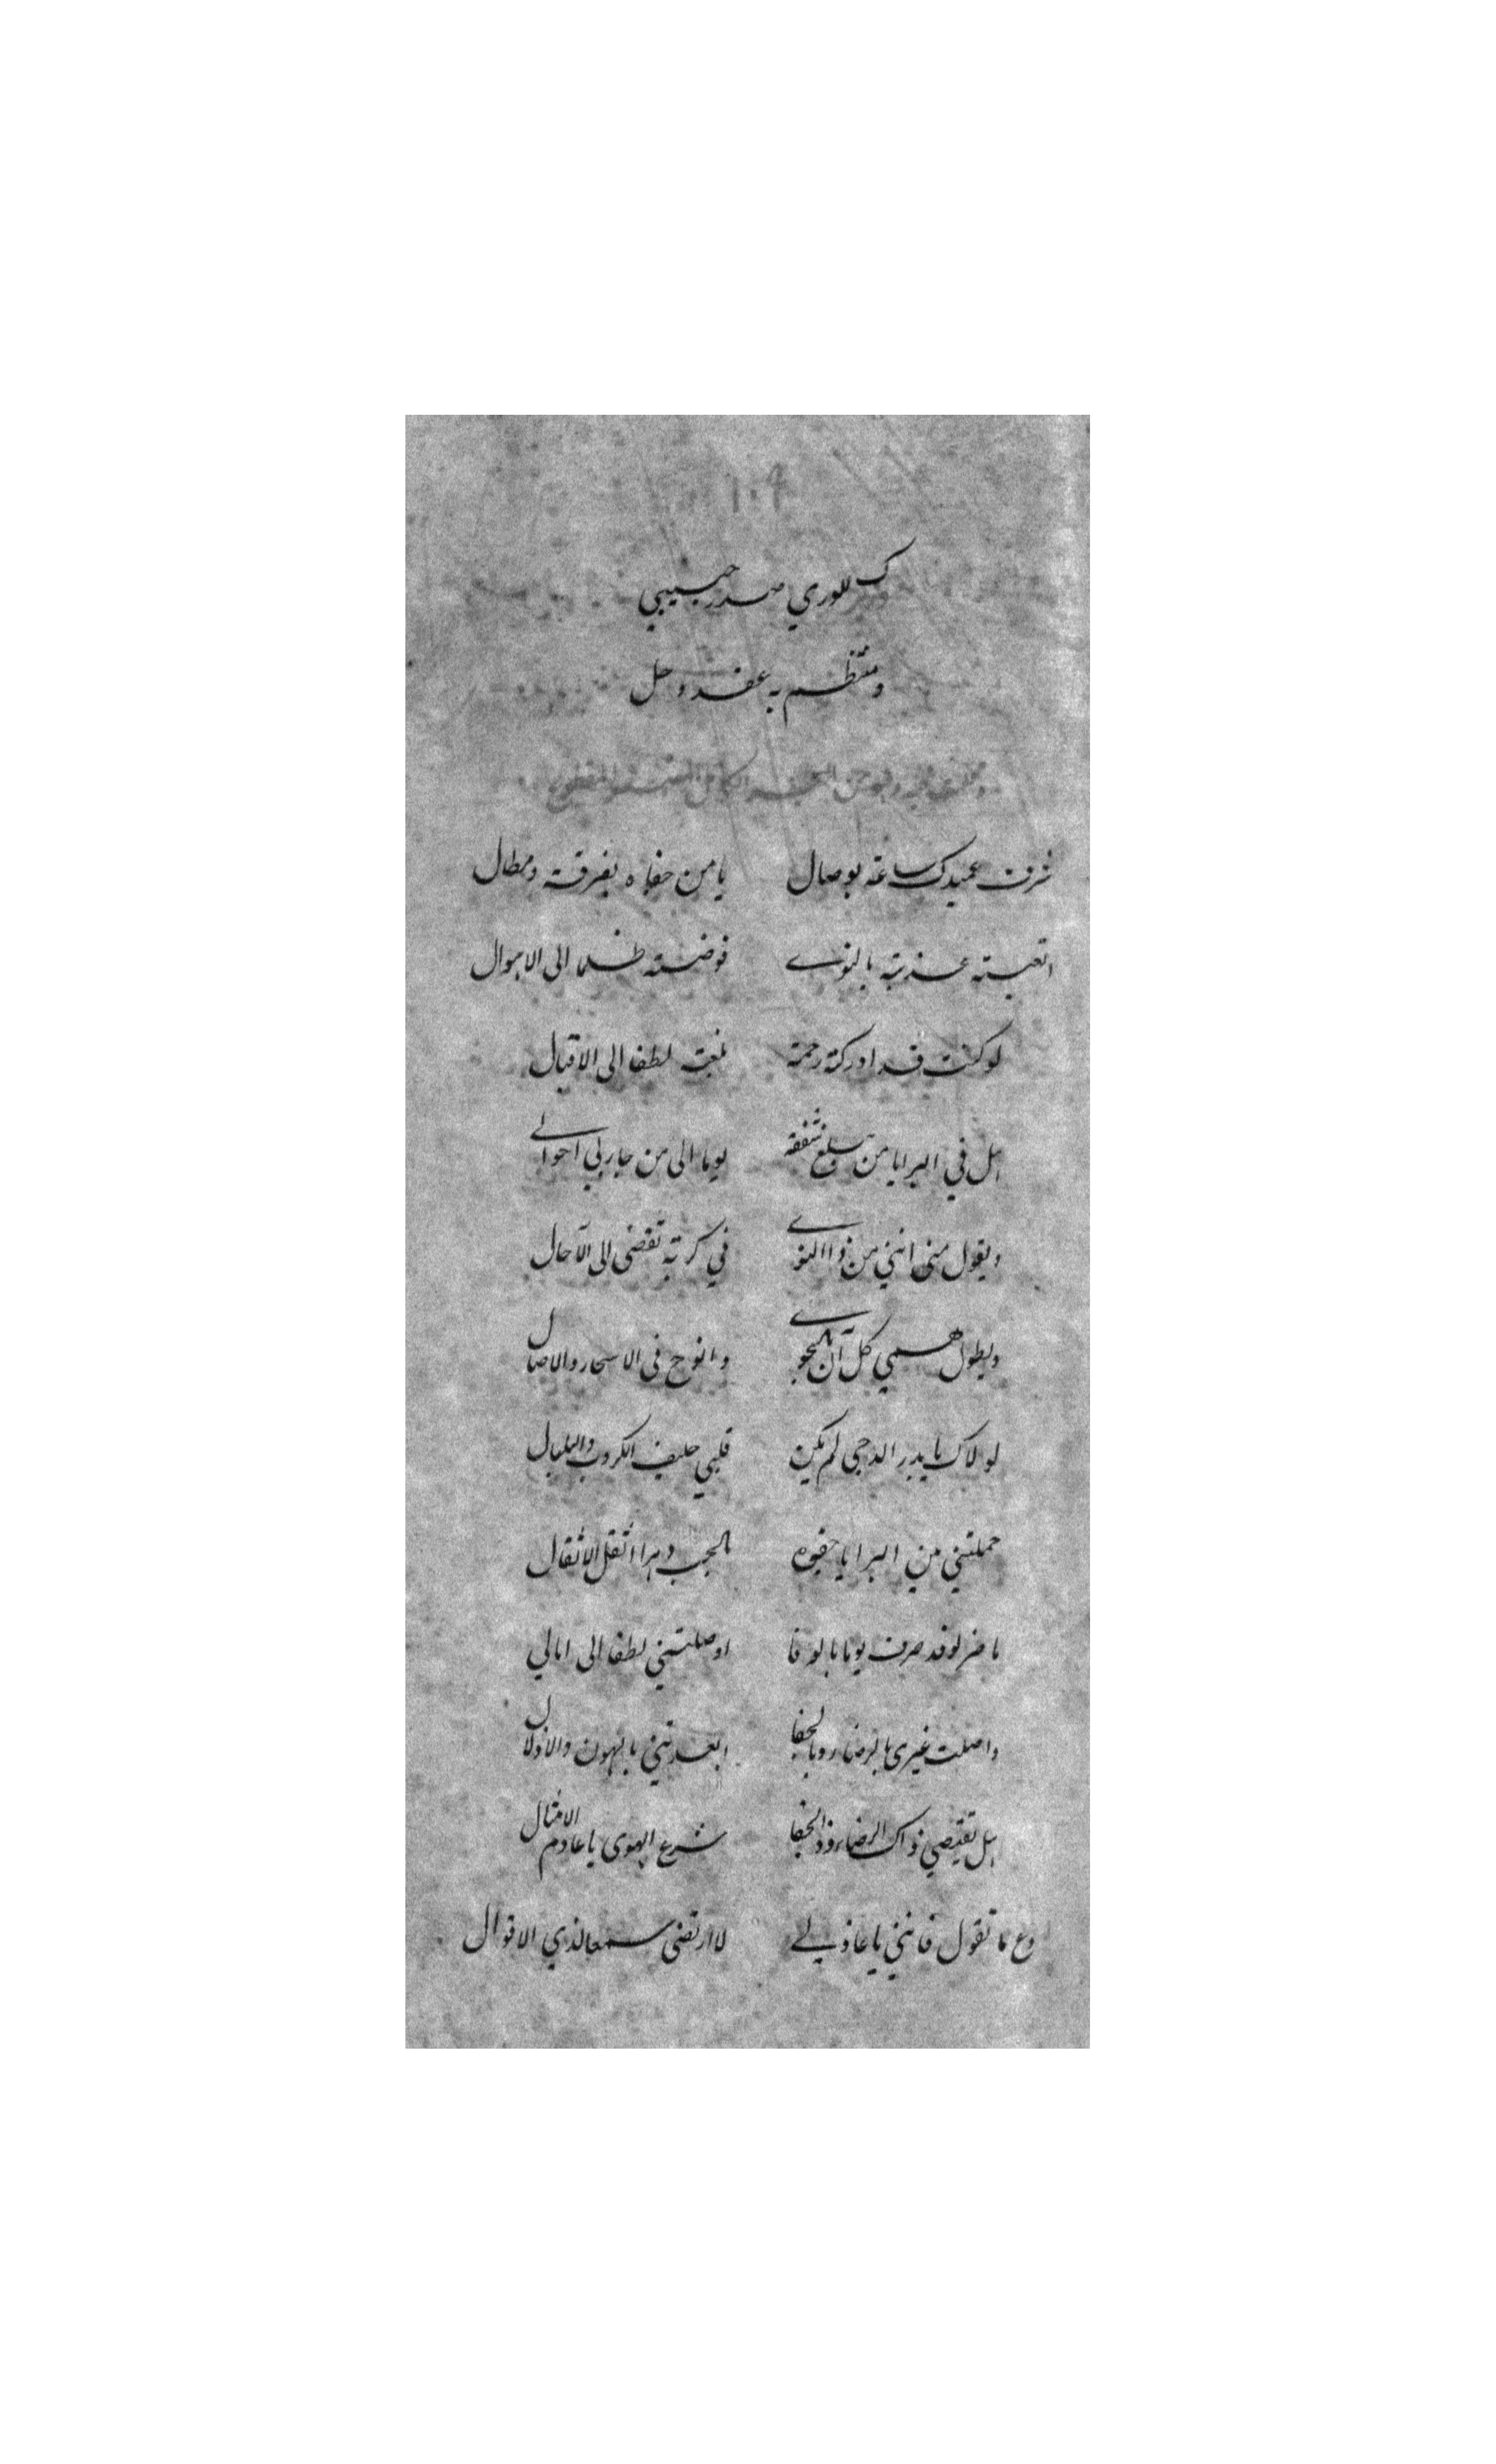 ١٠٩
ك للورى صدر حبيبي
ومنتظم به عقد وحل
وقلت فيه وهو من البحر الكامل
شرف عميدك ساعة بوصال يامن جفاه بفرقة ومطال
اتعبته عذبته بالنوى فوضته ظلما الى الاهوال
لو كنت قد ادركته رحمة لطفا الى الاقبال
هل في البرايا من يبلغ شفقة يوما الى من جار بي احوالي
ويقول منى اننى من ذا النوى في كربة تفضى الى الآجال
ويطول همي كل آن بالجوى وانوح فى الاسحار والاصال
لولاك يا بدر الدجى لم يكن قلبي حليف الكروب والبلبال
حملتني من البرايا جفوه بالحب دهرا اثقل الاثقال
ما ضر لو قد صرف يوما بالوفا اوصلتني لطفا الى امالي
واصلت غيرى بالرضاء وبالجفا ابعدتني بالهون والاذلال
هل تقتضي ذاك الرضاء وذا الجفا شرع الهوى يا عادم الامثال
دع ما تقول فاننى يا عاذلي لا ارتضى سمعا لذي الاقوال